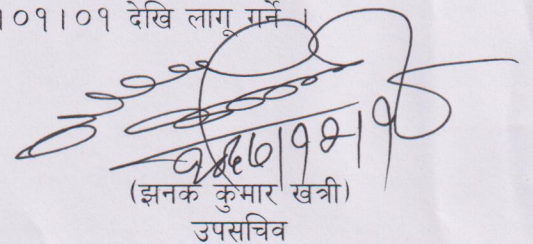 ।०१।०१ देखि लागू गर्ने ।
(झनक कुमार खत्री)
उपसचिव